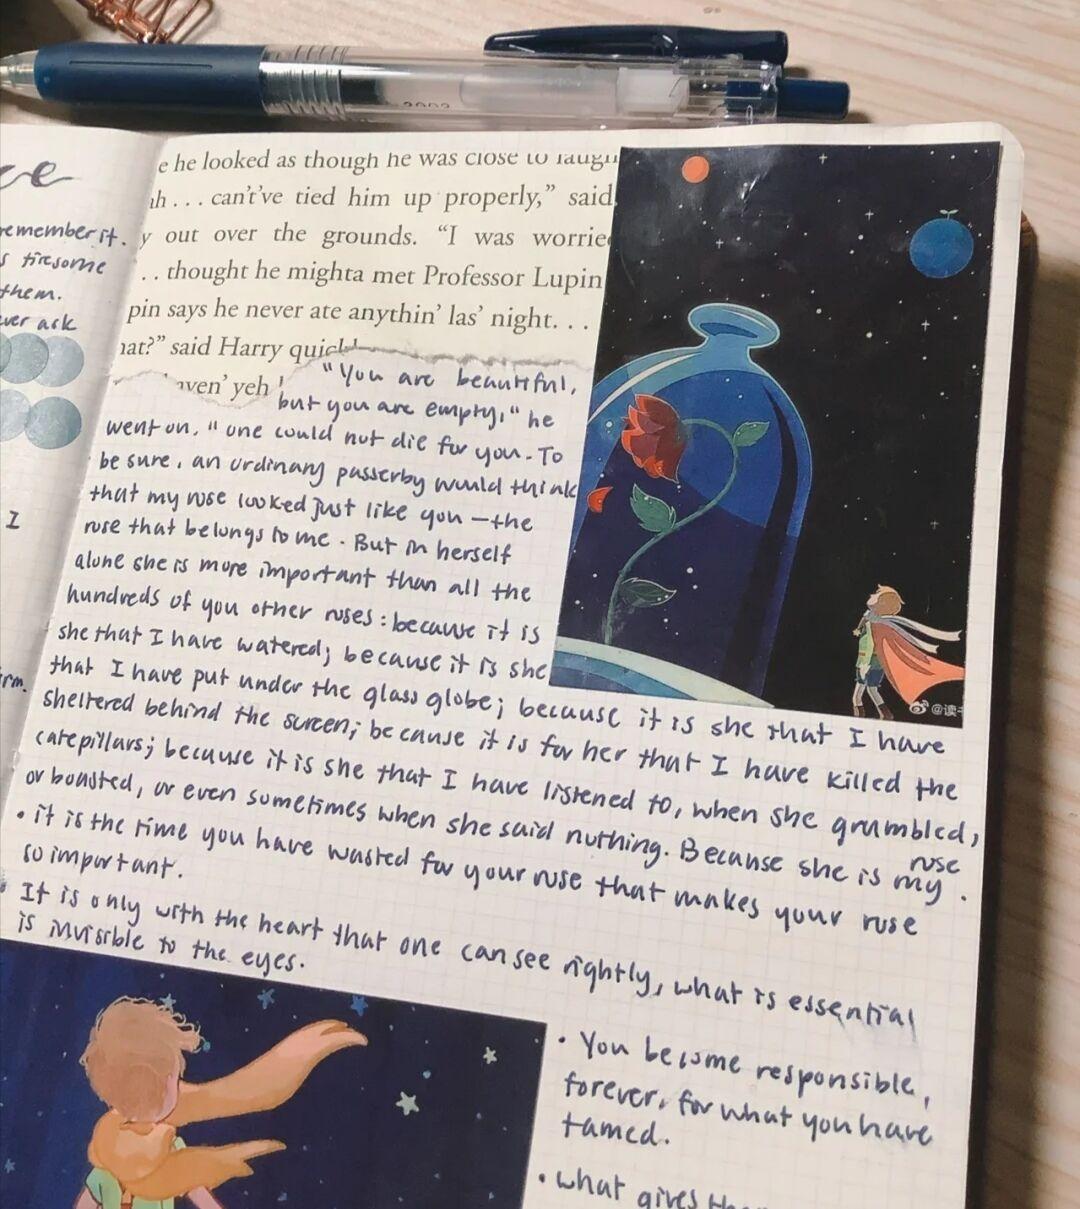 2003
ce
remember it.
tiresome
them.
ever ask
I
e he looked as though he was close to laugh
ah . . . can't've tied him up properly,” said
y out over the grounds. “I was worrie
. . thought he mighta met Professor Lupin
pin says he never ate anythin’ las’ night. . .
hat?” said Harry quickl
aven’ yeh
"You are beautiful,
but you are empty," he
went on. "one could not die for you. To
be sure, an ordinary passerby would think
that my rose looked just like you —the
rose that belongs to me. But in herself
alone she is more important than all the
hundreds of you other roses: because it is
she that I have watered; because it is she
that I have put under the glass globe; because it is she that I have
sheltered behind the screen; because it is for her that I have killed the
catepillars; because it is she that I have listened to, when she grumbled,
or boasted, or even sometimes when she said nothing. Because she is my rose.
• it is the time you have wasted for your rose that makes your rose
so important.
• It is only with the heart that one can see rightly, what is essential
is invisible to the eyes.
• You become responsible,
forever, for what you have
tamed.
• what gives the
@读